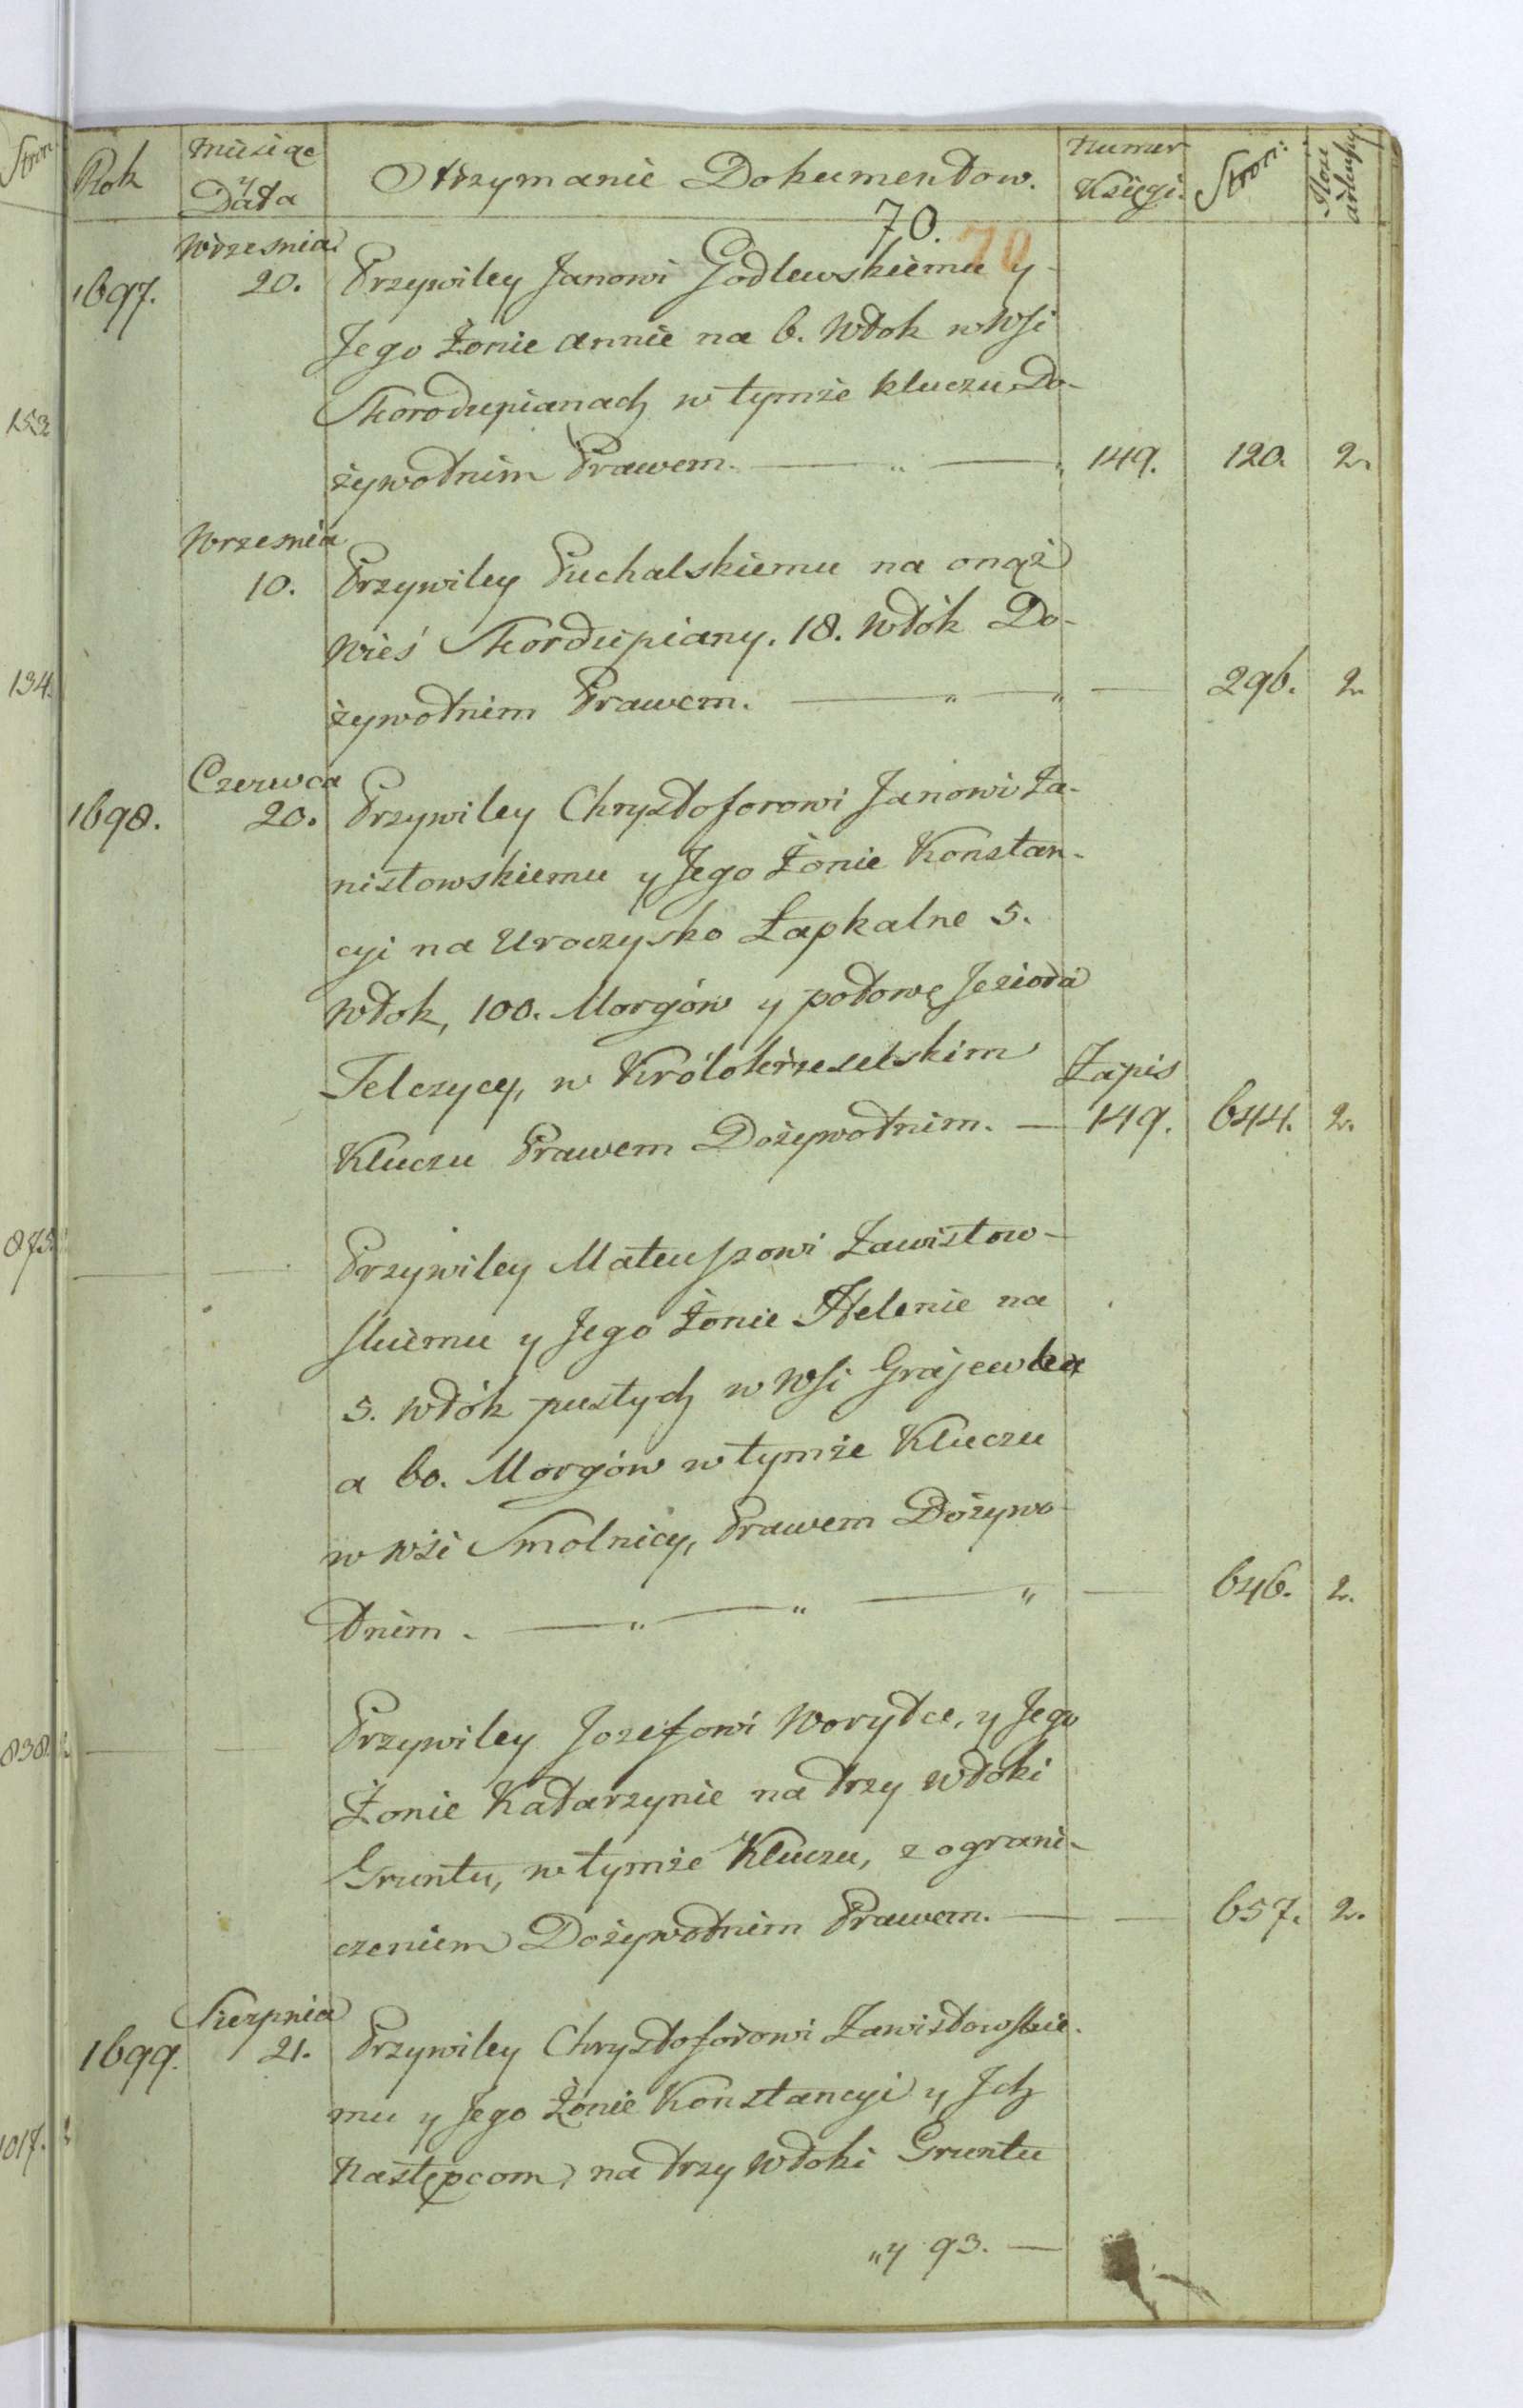 Rok
Miesiąc
y
Data
Otrzymanie Dokumentow.
Numer
Księgi.
Stron:
70.
70
1697.
Wrzesnia
20.
Przywiley Janowi Godlewskiemu y
Jego Żonie Annie na 6. Włok w Wsi
Skorodupianach w tymże kluczu Do-
żywotnim Prawem. 149. 120. 2.
Wrzesnia
10.
Przywiley Puchalskiemu na onąż
Wieś Skordupiany. 18. Włók Do-
żywotnim Prawem. 296. 2.
1698.
Czerwca
20.
Przywiley Chrysztoforowi Janowi Za-
nisłowskiemu y Jego Żonie Konstan-
cyi na Uroczysko Łapkalne 5.
Włok, 100. Morgów y połowę Jezioła
Telczycy, w Królokrzeselskim Zapis
Kluczu Prawem Dożywotnim. 149. 644. 2.
Przywiley Mateuszowi Zawistow-
skiemu y Jego Żonie Helenie na
5. Włók pustych w Wsi Grajewka
a 60. Morgów w tymże Kluczu
w Wsi Smolnicy, Prawem Dożywo-
tnim. 646. 2.
Przywiley Jozefowi Worytce, y Jego
Żonie Katarzynie na trzy Włoki
Gruntu, w tymże Kluczu, z ograni-
czeniem Dożywotnim Prawem. 657. 2.
1699.
Sierpnia
21.
Przywiley Chrysztoforowi Zawistowskie-
mu y Jego Żonie Konstancyi y Jch
Następcom, na trzy Włoki Gruntu
„y 93.
Stron
153
134.
873
838
1017.